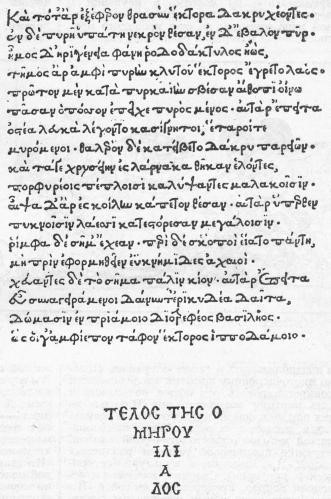 Καὶ τότ' ἂρ ἐξέφερον θρασὺν ἕκτορα δάκρυ χέοντες·
ἐν δὲ πυρῇ ὑπάτῃ νεκρὸν θέσαν, ἐν δ' ἔβαλον πῦρ·
ἦμος δ' ἠριγένεια φάνη ῥοδοδάκτυλος ἠώς,
τῆμος ἄρ' ἀμφὶ πυρὴν κλυτοῦ ἕκτορος ἔγρετο λαός·
πρῶτον μὲν κατὰ πυρκαϊὴν σβέσαν αἴθοπι οἴνῳ
πᾶσαν ὁπόσσον ἐπέσχε πυρὸς μένος· αὐτὰρ ἔπειτα
ὀστέα λευκὰ λέγοντο κασίγνητοι, ἕταροί τε
μυρόμενοι· θαλερὸν δὲ κατείβετο δάκρυ παρειῶν·
καὶ τά γε χρυσείην ἐς λάρνακα θῆκαν ἑλόντες,
πορφυρέοις πέπλοισι καλύψαντες μαλακοῖσιν·
αἶψα δ' ἄρ' ἐς κοίλην κάπετον θέσαν· αὐτὰρ ὕπερθεν
πυκνοῖσιν λάεσσι κατεστόρεσαν μεγάλοισιν·
ῥίμφα δὲ σῆμ' ἔχεαν· περὶ δὲ σκοποὶ εἵατο πάντῃ,
μὴ πρὶν ἐφορμηθεῖεν ἐϋκνήμιδες ἀχαιοί·
χεύαντες δὲ τὸ σῆμα πάλιν κίον· αὐτὰρ ἔπειτα
εὖ συναγειράμενοι δαίνυντ' ἐρικυδέα δαῖτα,
δώμασιν ἐν πριάμοιο διοτρεφέος βασιλῆος·
ὡς οἵ γ' ἀμφίεπον τάφον ἕκτορος ἱπποδάμοιο·
ΤΕΛΟΣ ΤΗΣ Ο
ΜΗΡΟΥ
ΙΛΙ
Α
ΔΟΣ